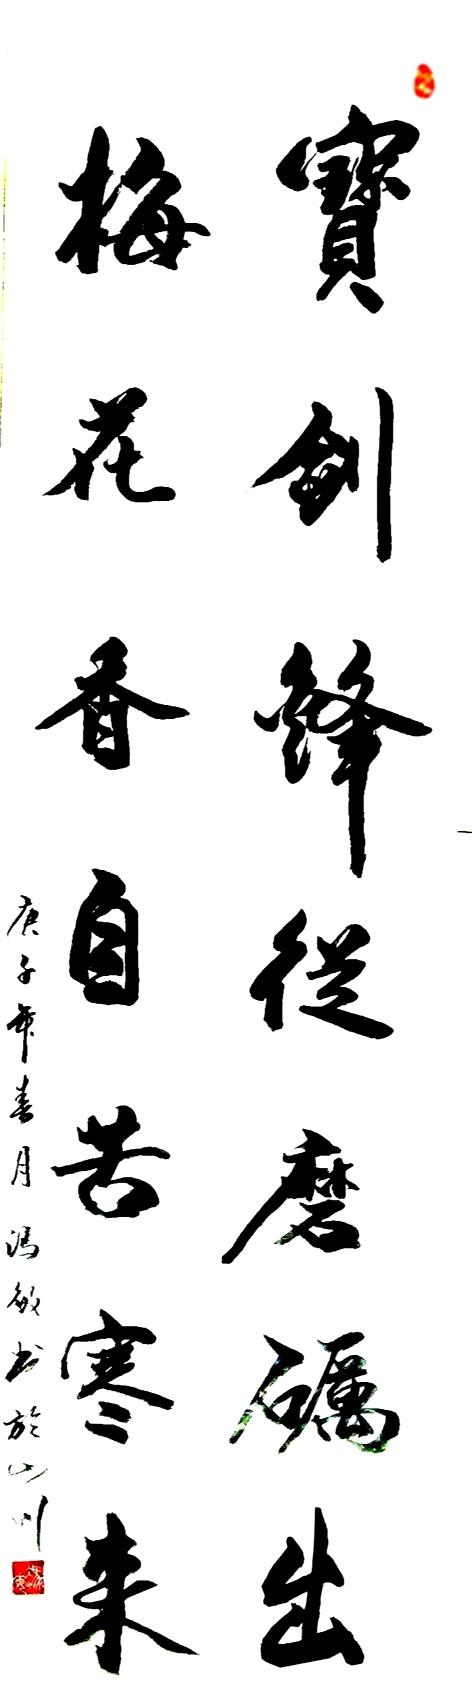 寶劍鋒從磨礪出
梅花香自苦寒来
庚子年春月冯敏书於山川